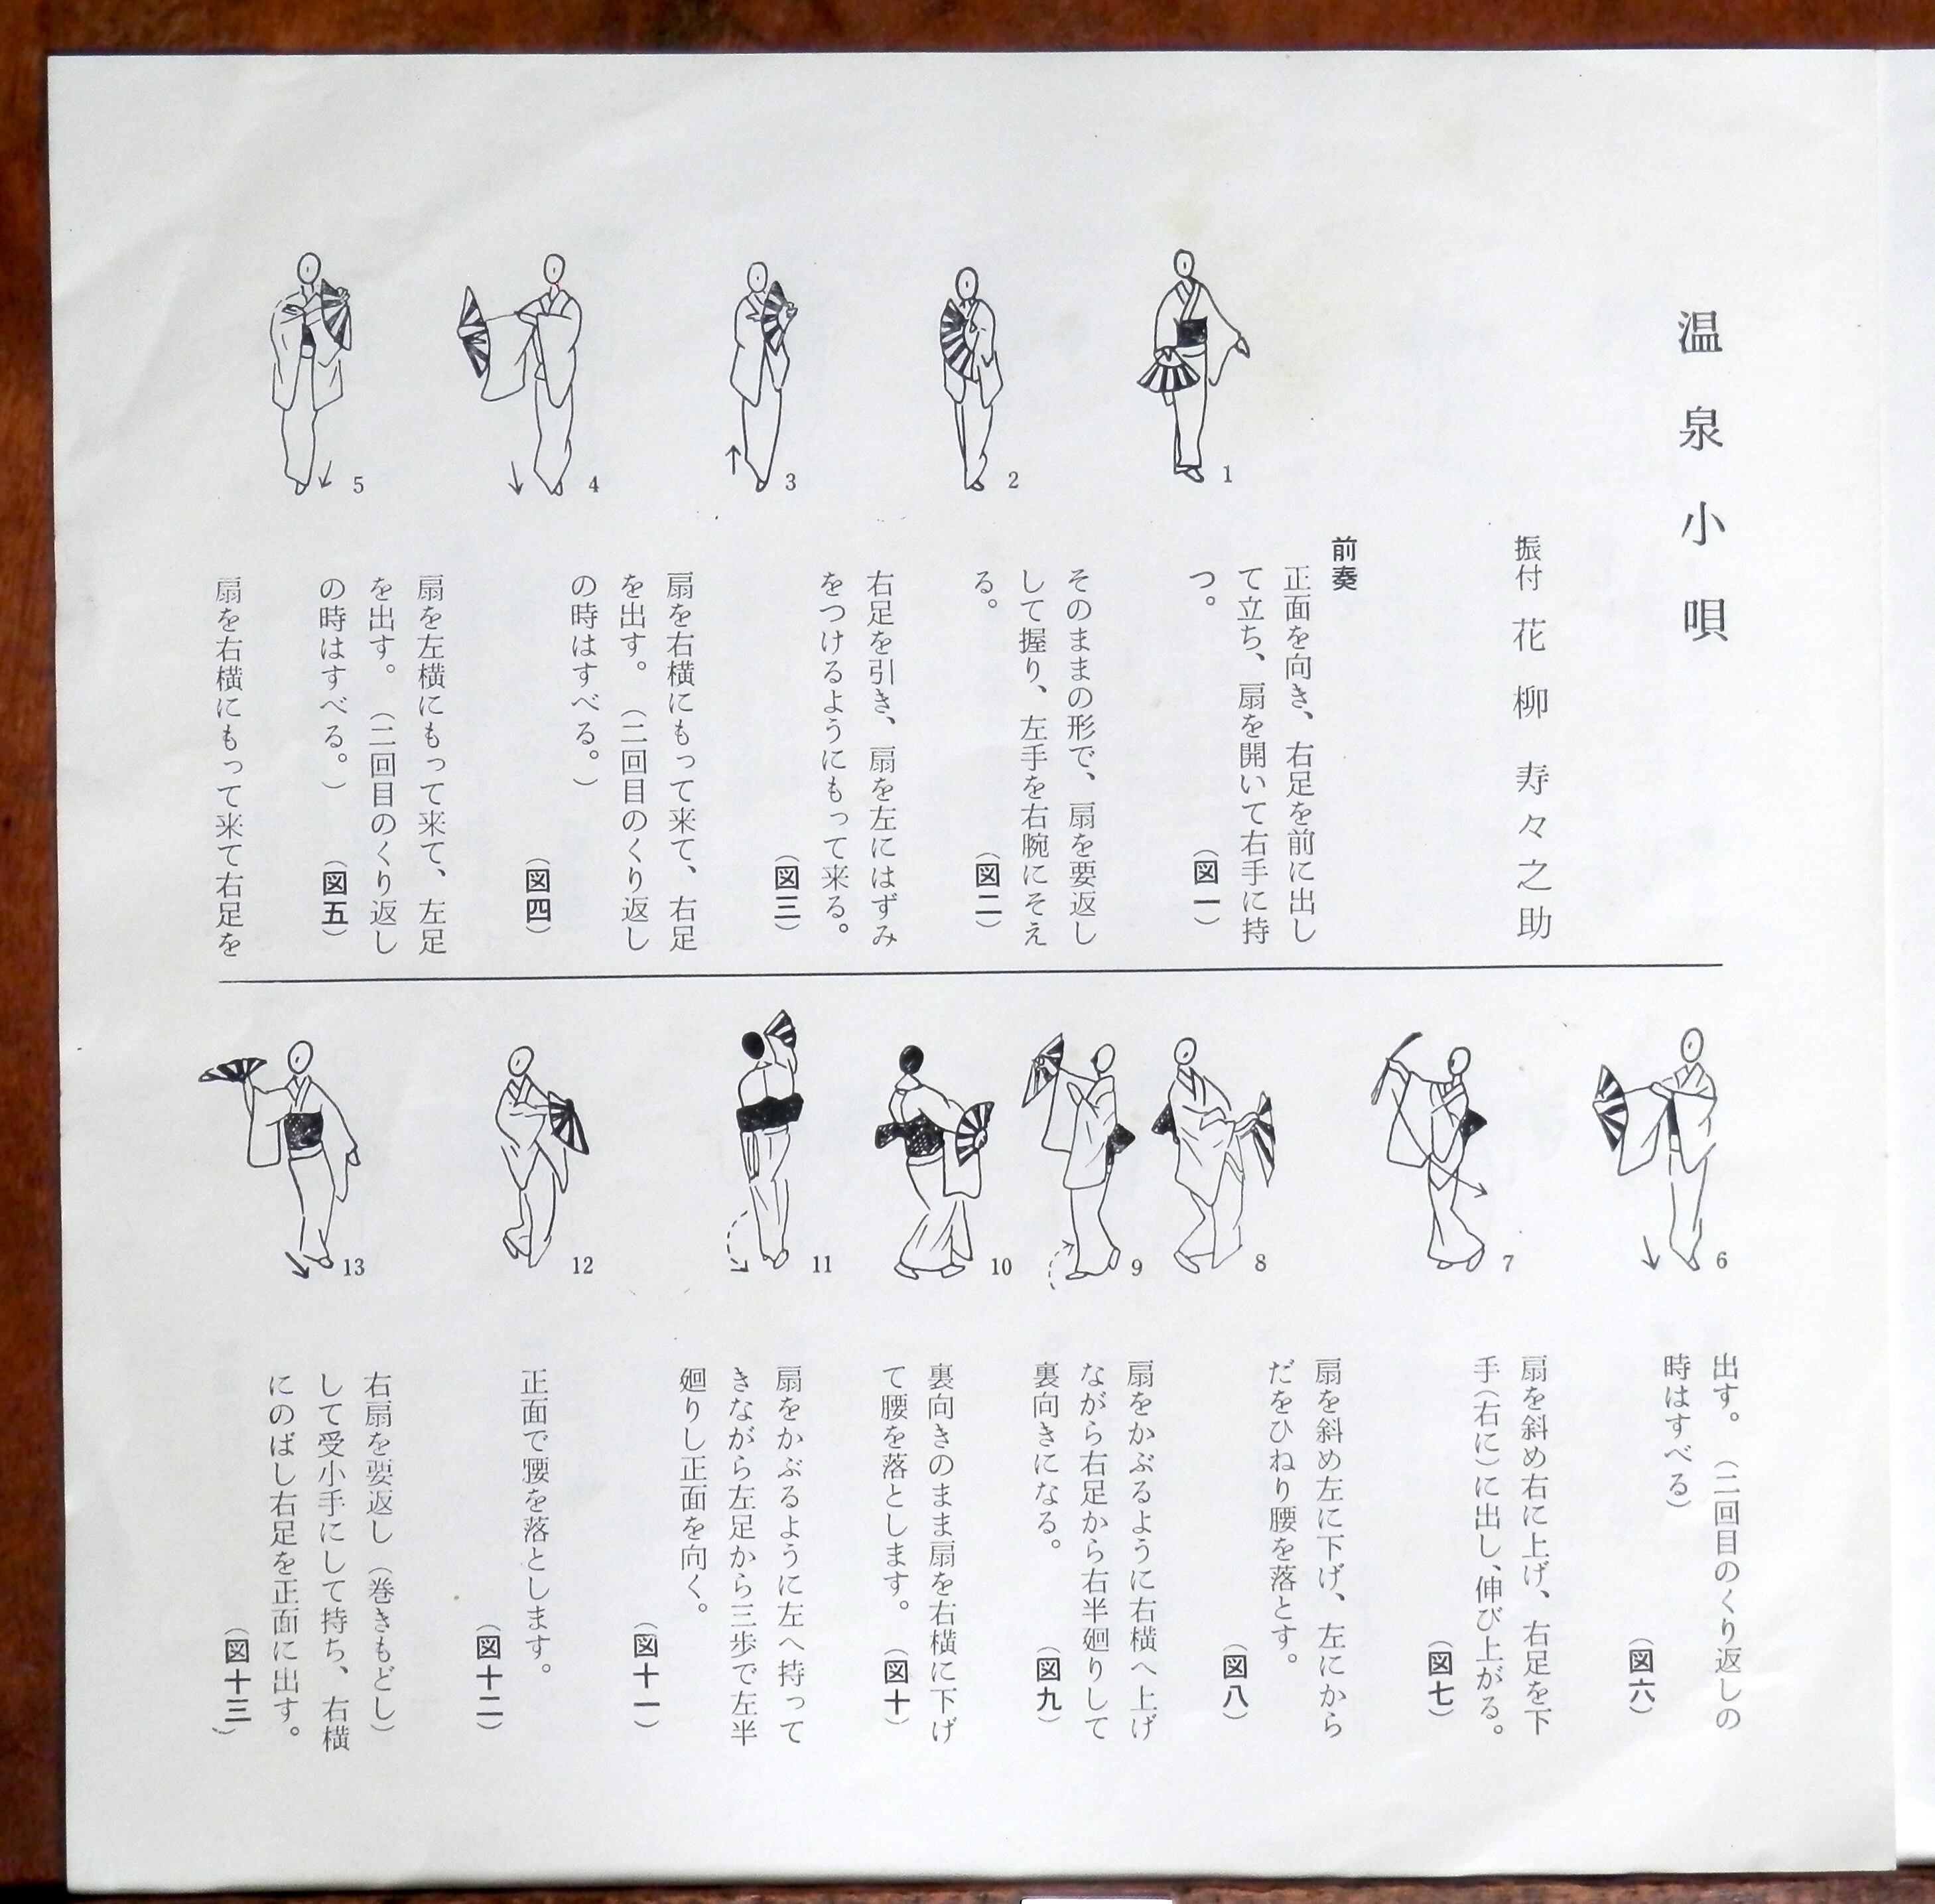 温泉小唄
振付 花柳寿々之助
1
2
3
4
5
前奏
正面を向き、右足を前に出し
て立ち、扇を開いて右手に持
つ。
（図一）
そのままの形で、扇を要返し
して握り、左手を右腕にそえ
る。
（図二）
右足を引き、扇を左にはずみ
をつけるようにもって来る。
（図三）
扇を右横にもって来て、右足
を出す。（二回目のくり返し
の時はすべる。）
（図四）
扇を左横にもって来て、左足
を出す。（二回目のくり返し
の時はすべる。）
（図五）
扇を右横にもって来て右足を
6
7
8
9
10
11
12
13
出す。（二回目のくり返しの
時はすべる）
（図六）
扇を斜め右に上げ、右足を下
手（右に）に出し、伸び上がる。
（図七）
扇を斜め左に下げ、左にから
だをひねり腰を落とす。
（図八）
扇をかぶるように右横へ上げ
ながら右足から右半廻りして
裏向きになる。
（図九）
裏向きのまま扇を右横に下げ
て腰を落とします。
（図十）
扇をかぶるように左へ持って
きながら左足から三歩で左半
廻りし正面を向く。
（図十一）
正面で腰を落とします。
（図十二）
右扇を要返し（巻きもどし）
して受小手にして持ち、右横
にのばし右足を正面に出す。
（図十三）